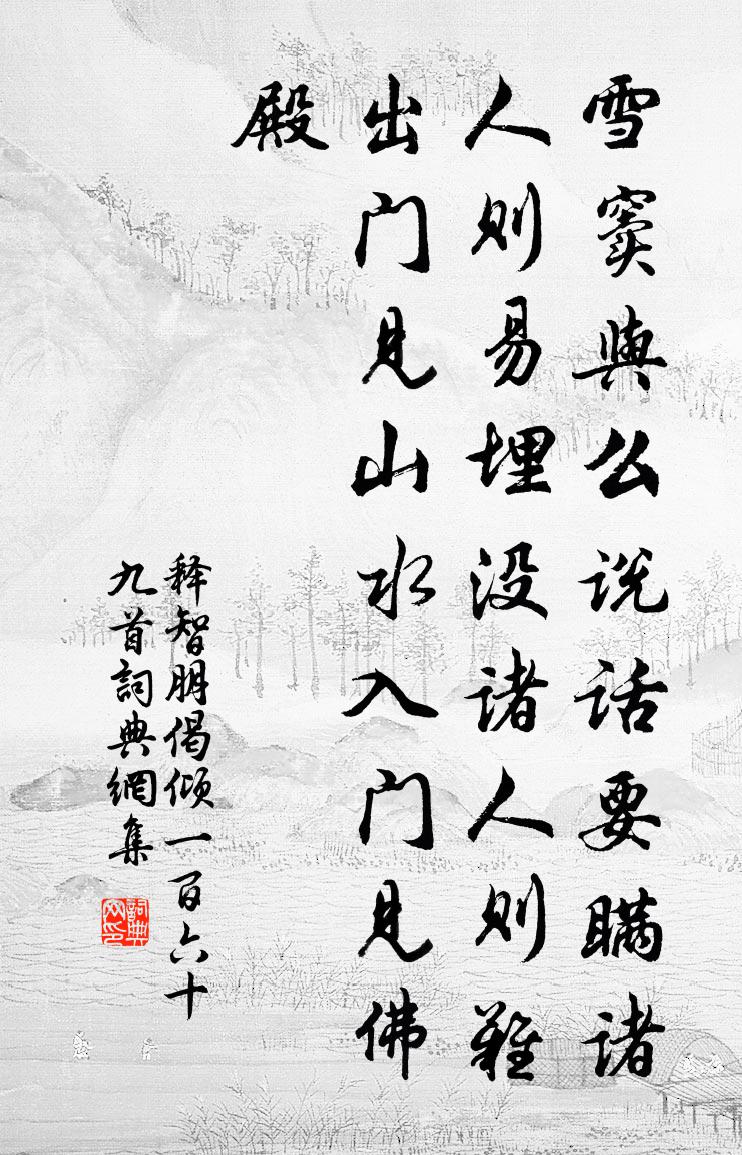 雪窦與么说话要瞒诸
人则易埋没诸人则难
出门见山水入门见佛
殿
释智朋偈倾一百六十
九首詞典網集
詞典
网印